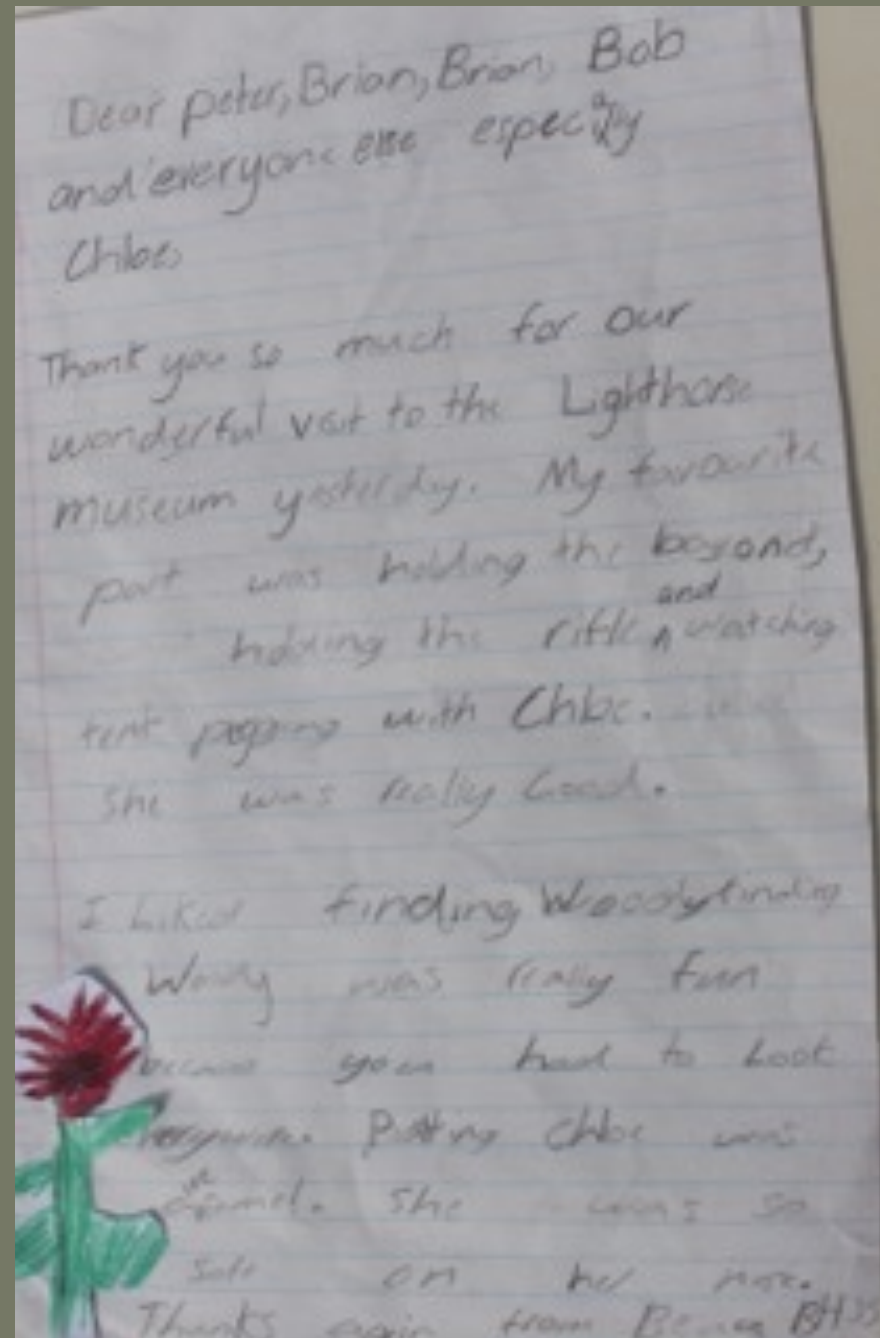 Dear peter, Brian, Brian, Bob
and everyone else especially
Chloe,
Thank you so much for our
wonderful visit to the Lighthorse
museum yesterday. My favourite
part was holding the bayond,
holding the rifle and watching
tent pegging with Chloe.
She was really Good.
I Liked finding Woody finding
Woody was really fun
because you had to Look
Patting Chloe was
She was so
soft on her nose.
Thanks again from